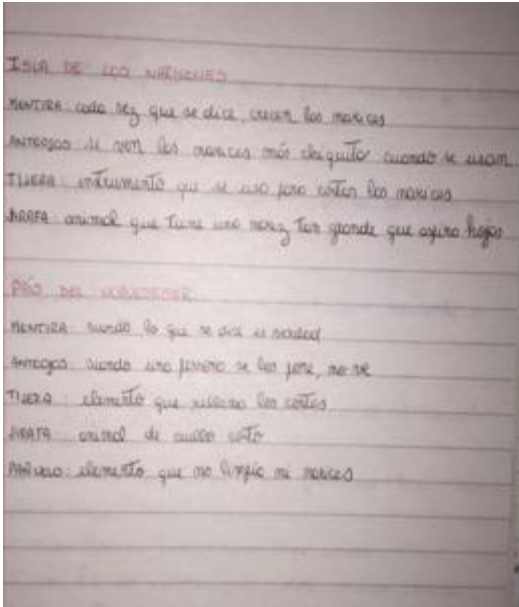 ISLA DE LOS NARIGONES
MENTIRA: cada vez que se dice, crecen las narices
ANTEOJOS se ven las narices más chiquito cuando se usan
TIJERA: instrumento que se usa para cortar las narices
JIRAFA animal que tiene una nariz tan grande que aspira hojas
PAÍS DEL
MENTIRA cuando lo que se dice es verdad
ANTEOJOS: cuando una persona se los pone, no ve
TIJERA: elemento que rellena los cortes
JIRAFA animal de cuello corto
PAÑUELO: elemento que no limpia ni narices